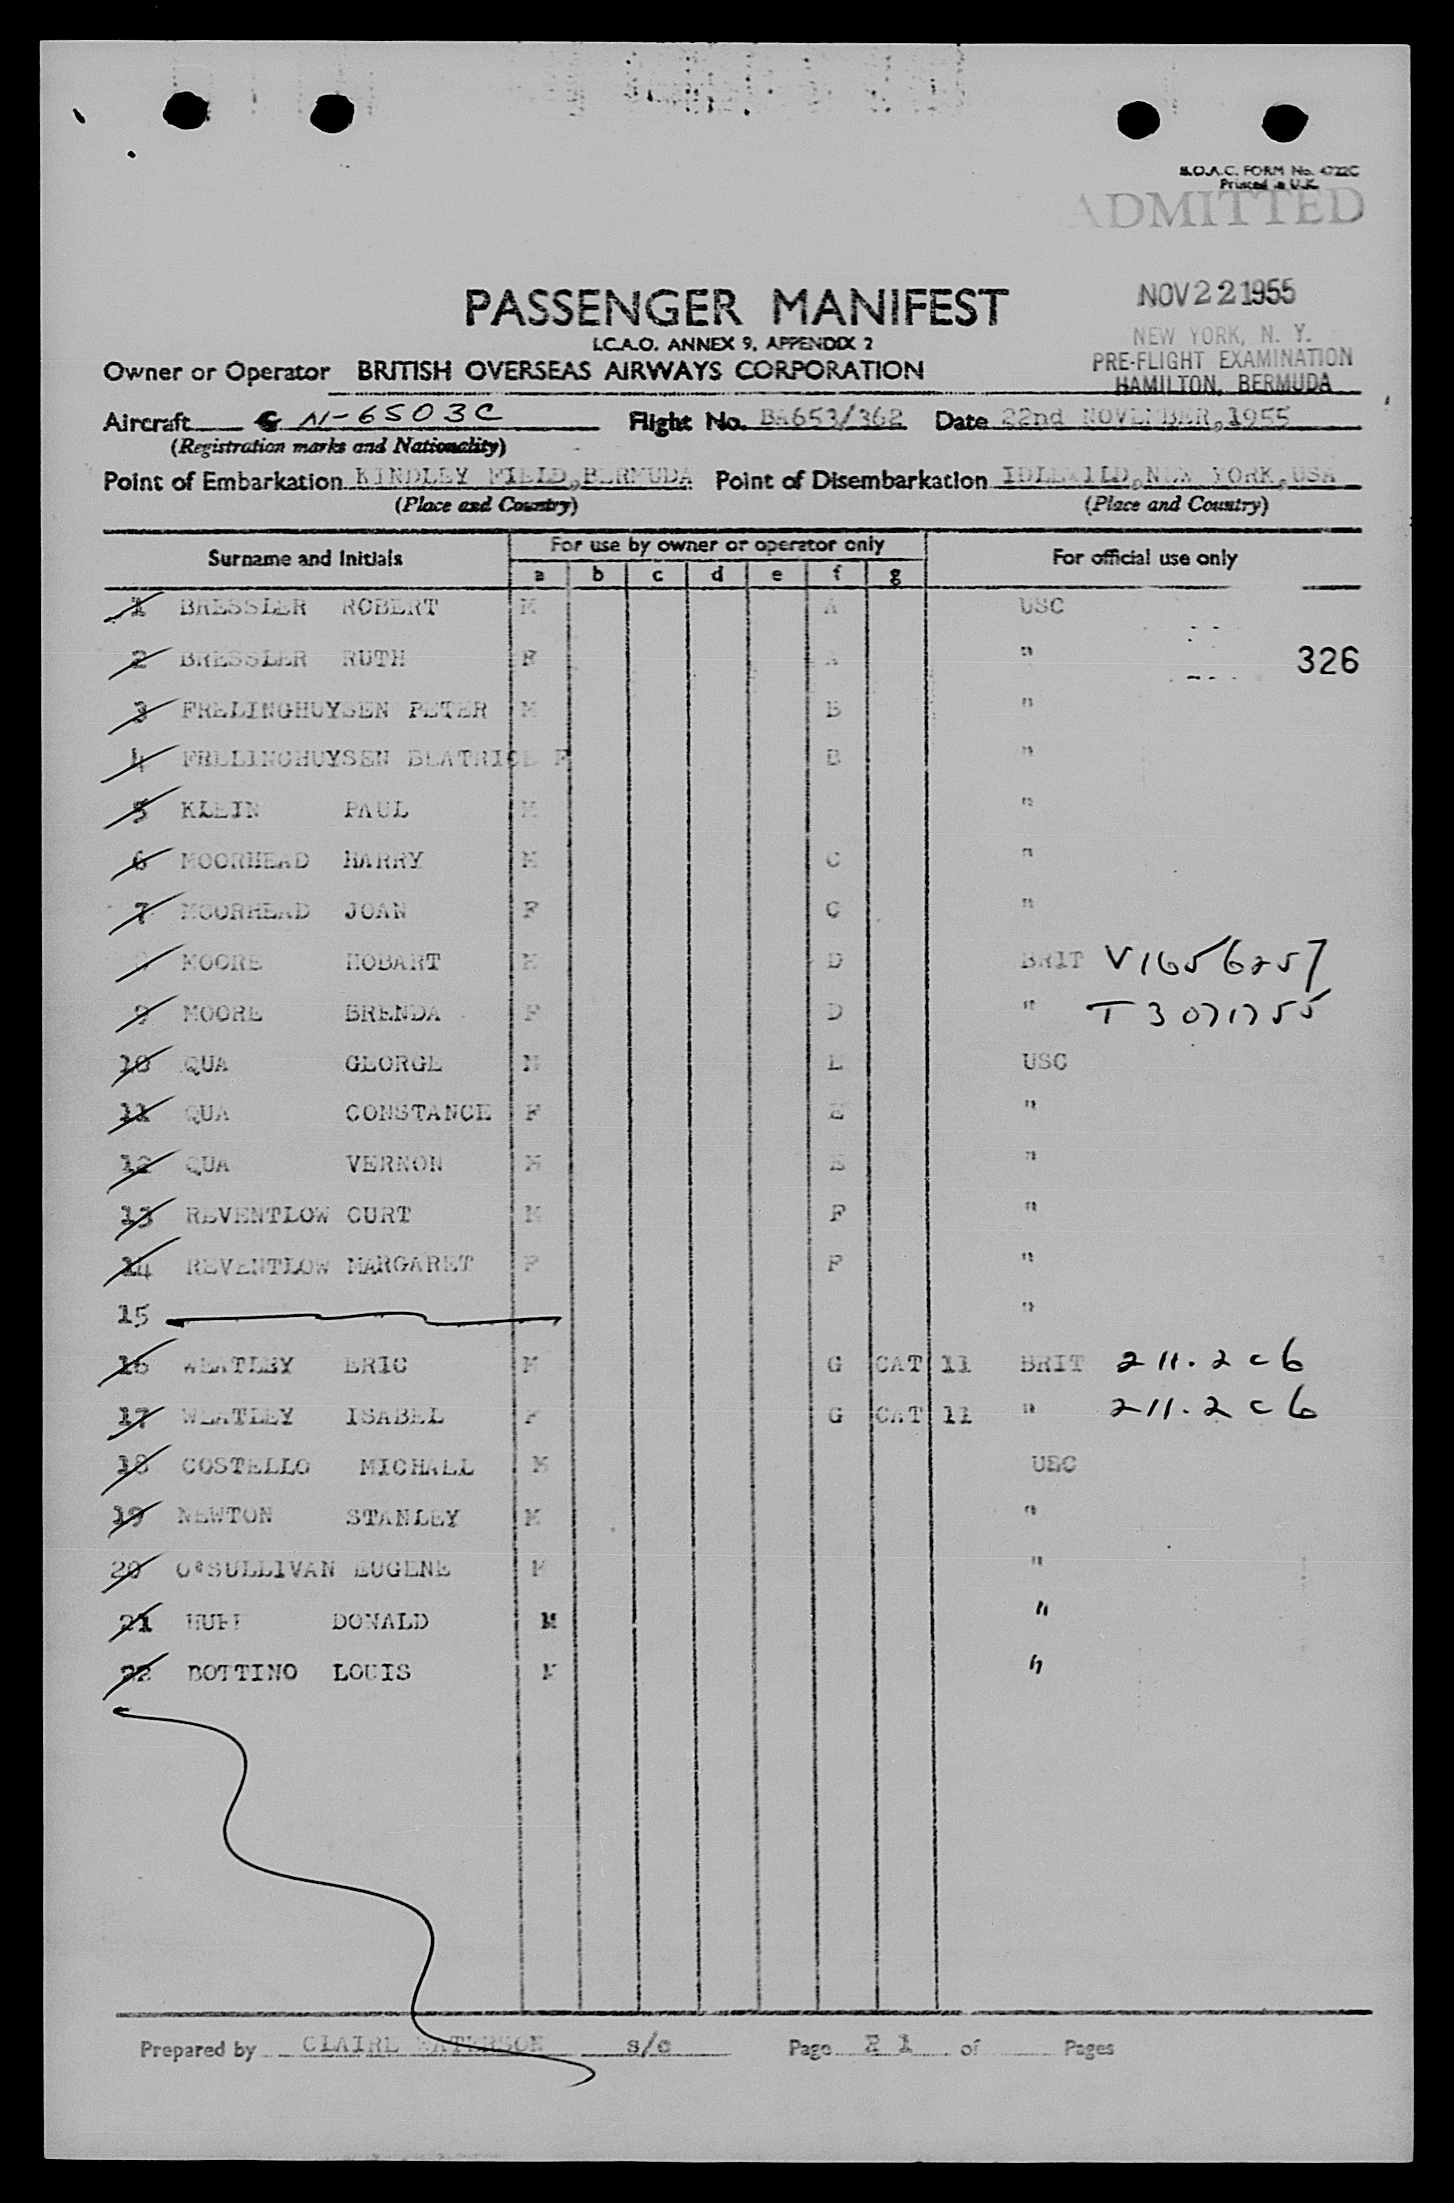 B.O.A.C. FORM No. 4722C
Printed in U.K.
ADMITTED
NOV 22 1955
NEW YORK, N. Y.
PRE-FLIGHT EXAMINATION
HAMILTON, BERMUDA
PASSENGER MANIFEST
I.C.A.O. ANNEX 9, APPENDIX 2
Owner or Operator BRITISH OVERSEAS AIRWAYS CORPORATION
Aircraft G N-6503C Flight No. BA653/362 Date 22nd NOVEMBER,1955
(Registration marks and Nationality)
Point of Embarkation KINDLEY FIELD,BERMUDA Point of Disembarkation IDLEWILD,NEW YORK,USA
(Place and Country) (Place and Country)
Surname and Initials For use by owner or operator only For official use only
a b c d e f g
1 BRESSLER ROBERT M A USC
2 BRESSLER RUTH F A " 326
3 FRELINGHUYSEN PETER M B "
4 FRELINGHUYSEN BEATRICE F B "
5 KLEIN PAUL M "
6 MOORHEAD HARRY M C "
7 MOORHEAD JOAN F C "
8 MOORE HOBART M D BRIT V1656257
9 MOORE BRENDA F D " T3071755
10 QUA GEORGE M E USC
11 QUA CONSTANCE F E "
12 QUA VERNON M E "
13 REVENTLOW CURT M F "
14 REVENTLOW MARGARET F F "
15 "
16 WEATLEY ERIC M G CAT 11 BRIT 211.2 c 6
17 WEATLEY ISABEL F G CAT 11 " 211.2 c 6
18 COSTELLO MICHAEL M USC
19 NEWTON STANLEY M "
20 O'SULLIVAN EUGENE M "
21 HUFF DONALD M "
22 BOTTINO LOUIS M "
Prepared by CLAIRE s/c Page P 1 of Pages